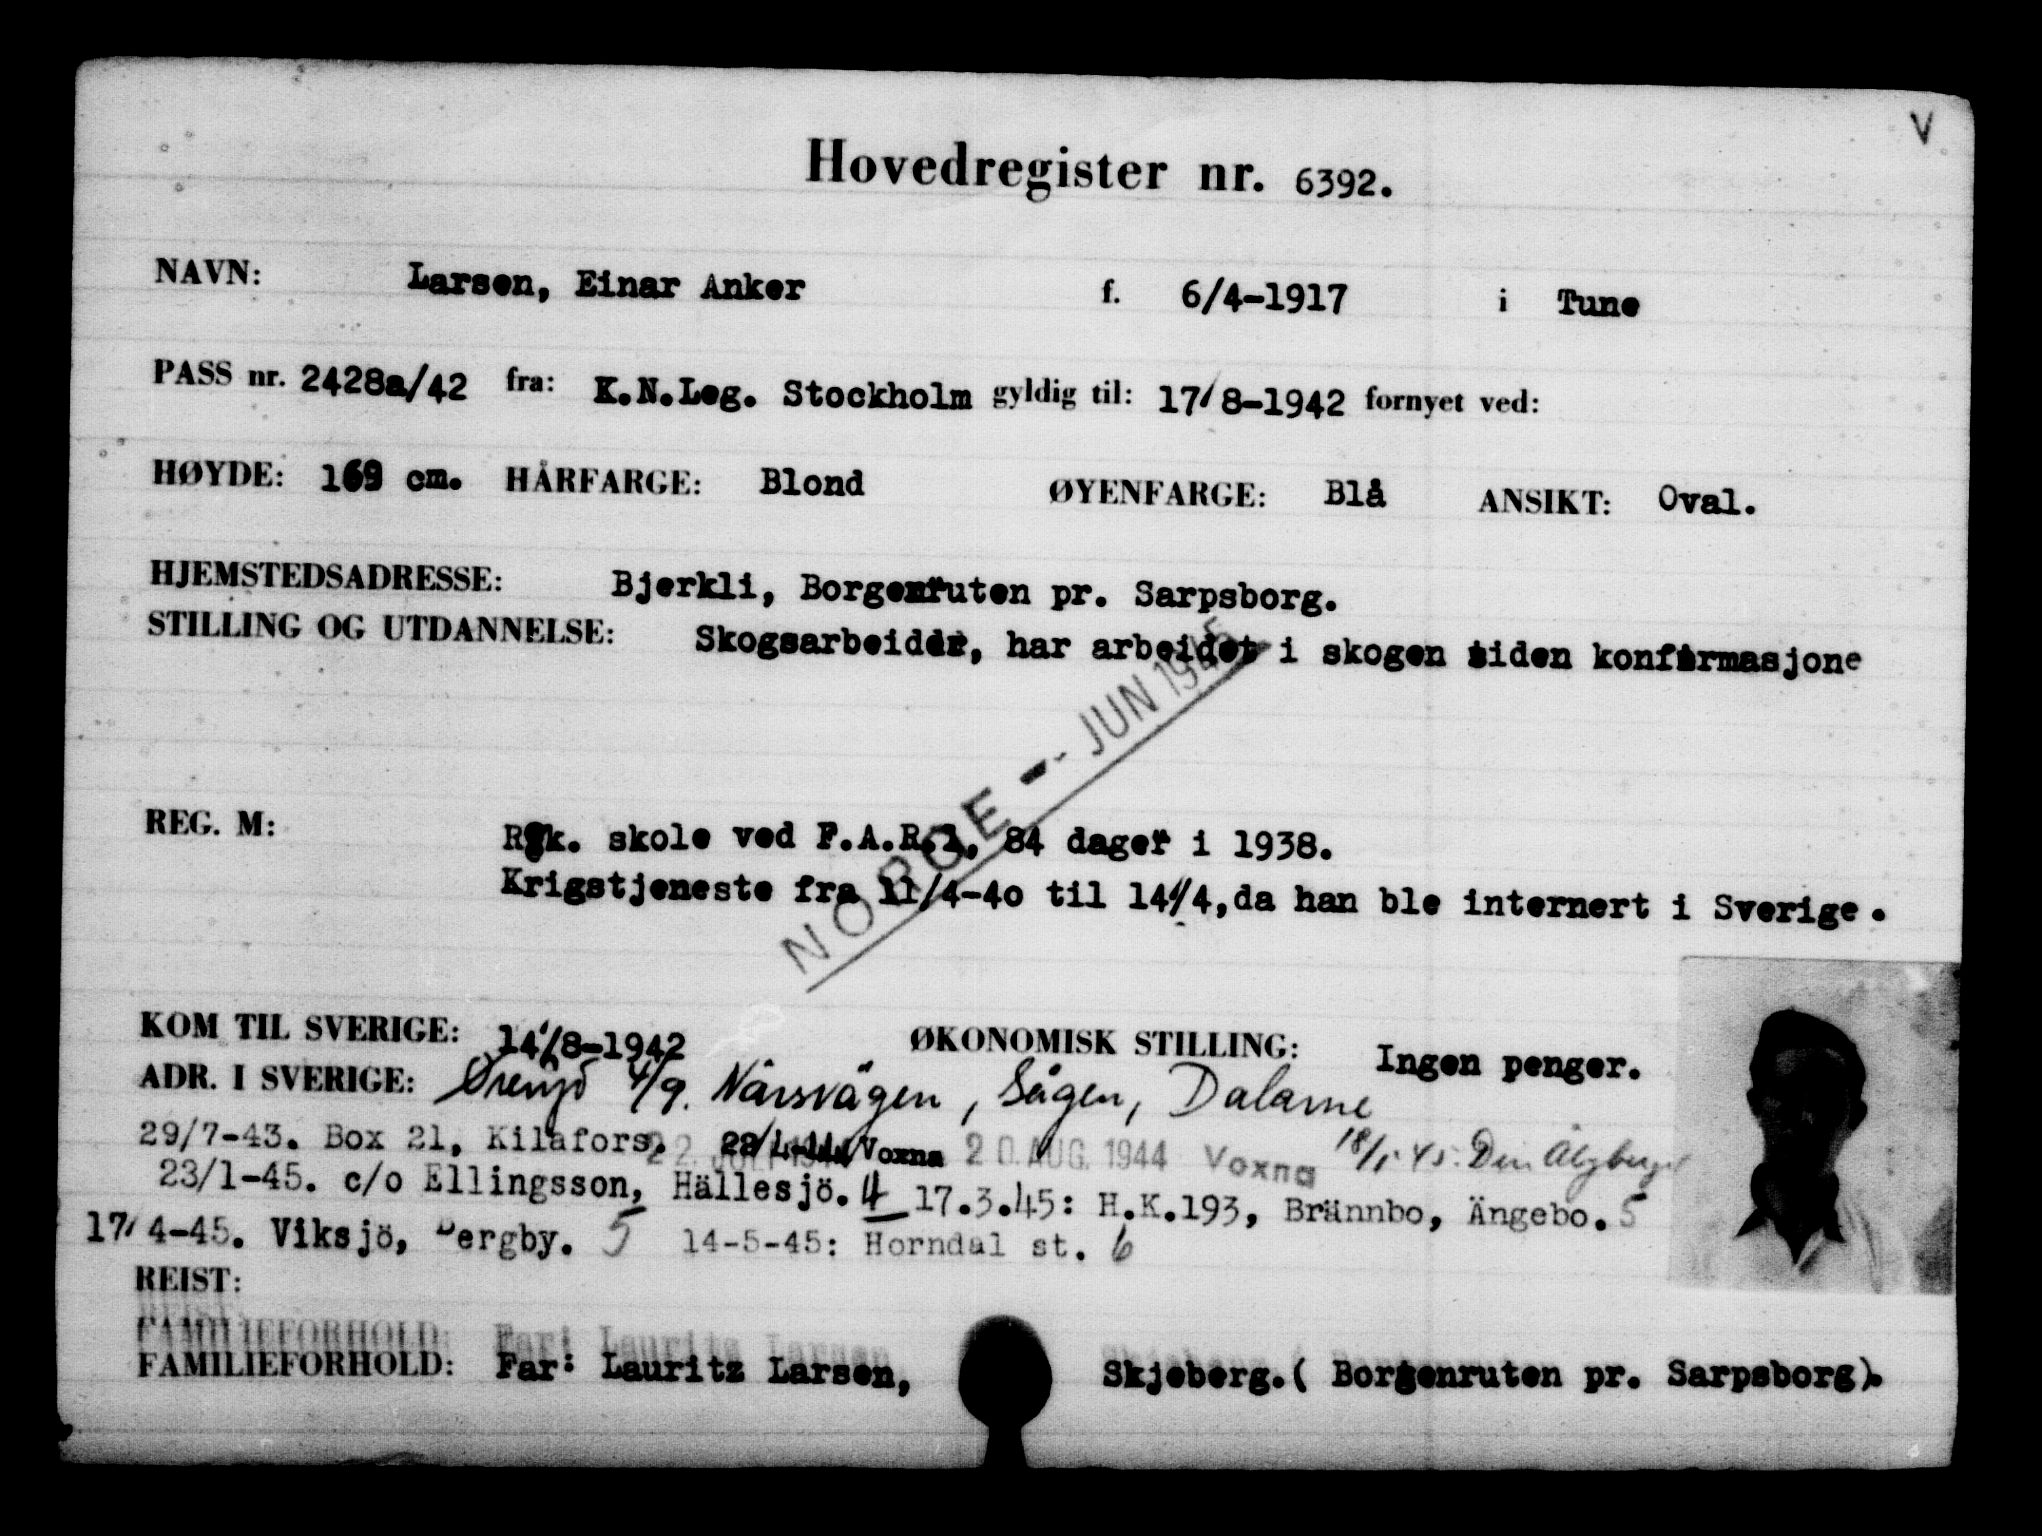 V
Hovedregister nr. 6392.
NAVN: Larsen, Einar Anker f. 6/4-1917 i Tune
PASS nr. 2428a/42 fra: K.N.Leg. Stockholm gyldig til: 17/8-1942 fornyet ved:
HØYDE: 169 cm. HÅRFARGE: Blond ØYENFARGE: Blå ANSIKT: Oval.
HJEMSTEDSADRESSE: Bjerkli, Borgenruten pr. Sarpsborg.
STILLING OG UTDANNELSE: Skogsarbeider, har arbeidet i skogen siden konfirmasjone
NORGE - JUN 1945
REG. M: Rek. skole ved F.A.R.1, 84 dager i 1938.
Krigstjeneste fra 11/4-40 til 14/4, da han ble internert i Sverige.
KOM TIL SVERIGE: 14/8-1942 ØKONOMISK STILLING: Ingen penger.
ADR. I SVERIGE: 4/9. Närsvägen, Sågen, Dalarne
29/7-43. Box 21, Kilafors. 22 JULI 194 Voxna 20. AUG. 1944 Voxna 18/1-45. Den
23/1-45. c/o Ellingsson, Hällesjö. 4 17.3.45: H.K.193, Brännbo, Ängebo. 5
17/4-45. Viksjö, Bergby. 5 14-5-45: Horndal st. 6
REIST:
FAMILIEFORHOLD: Far: Lauritz Larsen, Skjeberg. ( Borgenruten pr. Sarpsborg).